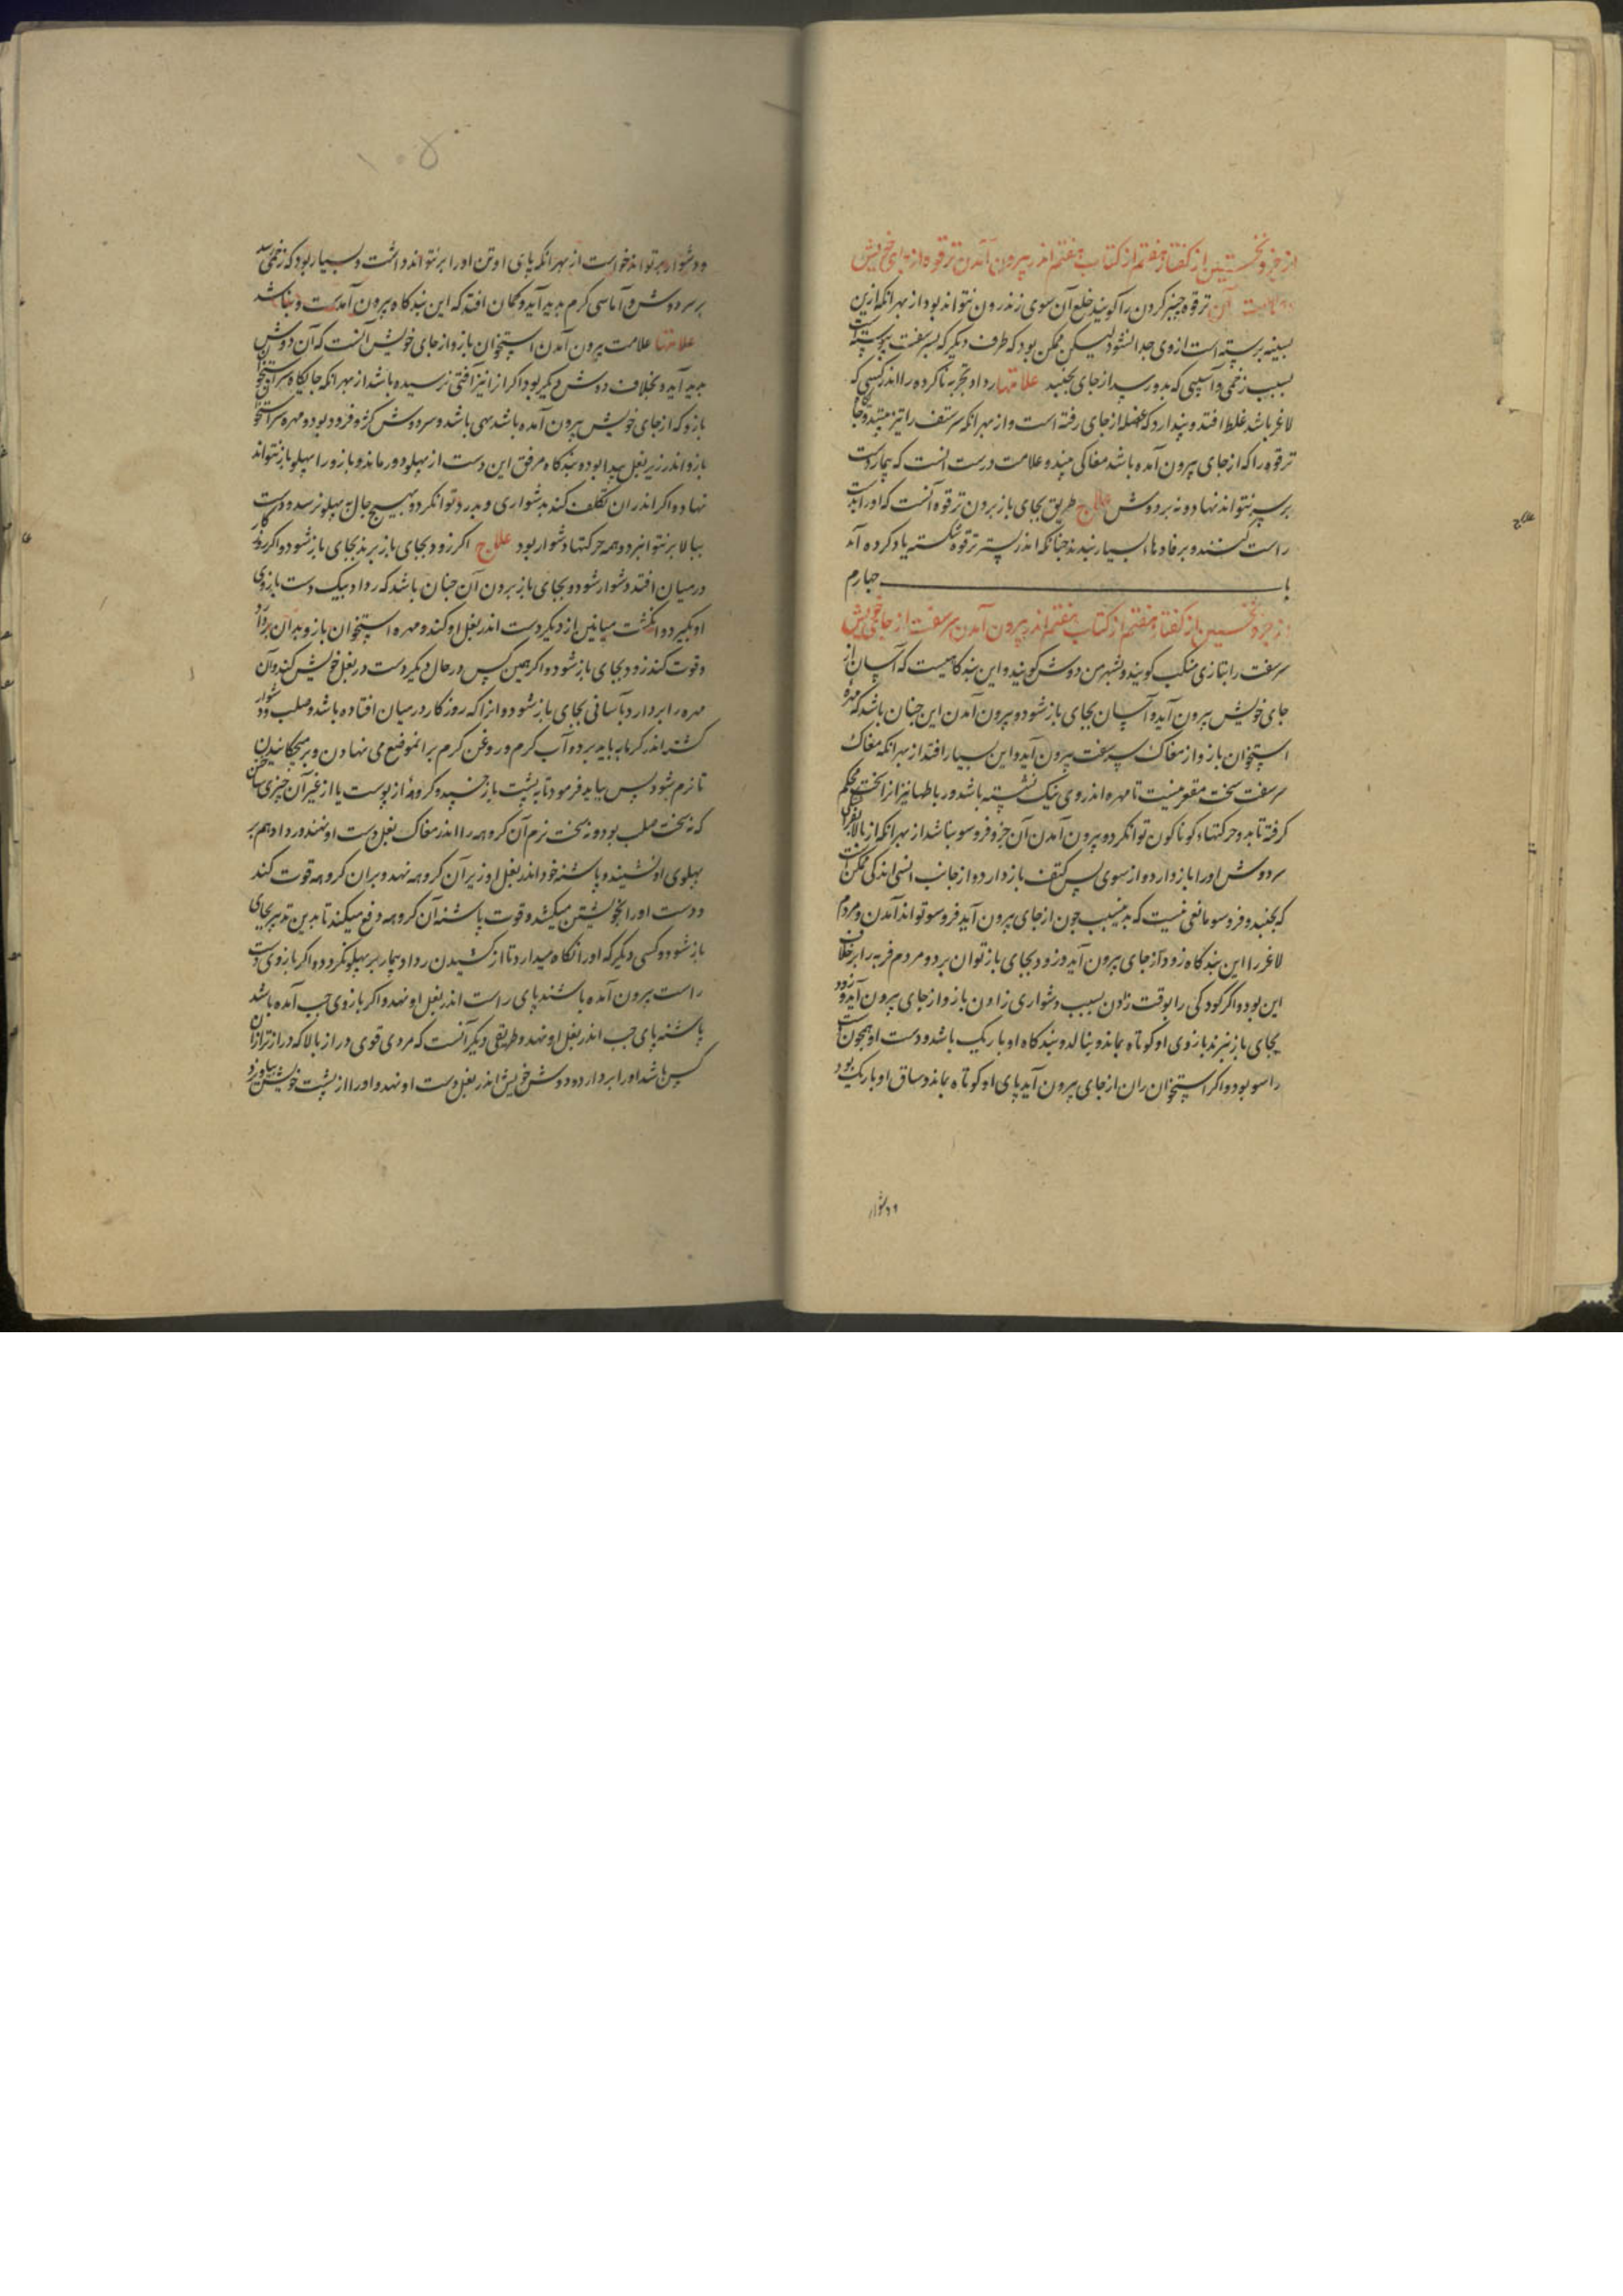 از جزو نخستین از کفتار هفتم از کتاب هفتم اندر بیرون آمدن ترقوه از جای خویش
ماهیت آن ترقوه چنبر کردن را کویند خلع آن سوی زندرون نتواند بود از بهر انکه ازین
بسینه برسته است از وی جدا نشود لیکن ممکن بود که طرف دیکر که بسر سفت پیوسته است
بسبب زخمی و آسیبی که بدو رسد از جای بجنبد علامتها رداد تجربه ناکرده را اندر کسی که
لاغر باشد غلط افتد و پندارد که عضد از جای رفته است و از بهر انکه سر سفت را تیز بیند و جا
ترقوه را که از جای بیرون آمده باشد مغاکی بیند و علامت درست انست که بیمار دست
بر سر نتواند نهاد و نه بر دوش علاج طریق بجای باز بردن ترقوه آنست که او را بدست
راست کنند و برفادها بسیار ببندند جنانکه اندر بستن ترقوه شکسته یاد کرده آمد
باب جهارم
از جزو نخستین از کفتار هفتم از کتاب هفتم اندر بیرون آمدن سر سفت از جای خویش
سر سفت را بتازی منکب کویند و بشهر من دوش کویند و این بندکاهیست که آسان از
جای خویش بیرون آید و آسان بجای باز شود و بیرون آمدن این جنان باشد که مهره
استخوان بازو از مغاک سر سفت بیرون آید و این بسیار افتد از بهر انکه مغاک
سر سفت سخت مقعر نیست تا مهره اندر وی نیک نشسته باشد و رباطها نیز انرا سخت محکم
کرفته تا بدو حرکتهاء کوناکون توانکرد و بیرون آمدن آن جز و فروسو بناشد از بهر انکه از بالا
سر دوش او را باز دارد و از سوی پس کتف باز دارد و از جانب انسی اندکی ممکن است
که بجنبد و فروسو مانعی نیست که بدینسبب جون از جای بیرون آید فروسو تواند آمدن و مردم
لاغر را این بندکاه زود از جای بیرون آید و زود بجای باز توان برد و مردم فربه را برخلاف
این بود و اکر کودکی را بوقت زادن بسبب دشواری زادن بازو از جای بیرون آید و زود
بجای باز نبرند بازوی او کوتاه بماند و بنالد و بندکاه او باریک باشد و دست او همجون دست
راسو بود و اکر استخوان ران از جای بیرون آید پای او کوتاه بماند و ساق او باریک بود
و دشوار
۱۰۵
و دشوار بر تواند خواست از بهر انکه پای او تن او را بر نتواند داشت و بسیار بود که زخمی رسد
بر سر دوش و آماسی کرم بدید آید و کمان افتد که این بندکاه بیرون آمدست و بناشد
علامتها علامت بیرون آمدن استخوان بازو از جای خویش آنست که آن دوش
بدید آید و بخلاف دوش دیکر بود اکر ازانیز آفتی نرسیده باشد از بهر انکه جایکاه سر استخوان
بازو که از جای خویش بیرون آمده باشد تهی باشد و سر دوش کژ و فرود بود و مهره سر استخوان
بازو اندر زیر بغل پیدا بود و بندکاه مرفق این دست از پهلو دور ماند و بازو را بپهلو باز نتواند
نهاد و اکر اندران تکلف کند بدشواری و بدرد توانکرد و بهیچ حال بپهلو نرسد و دست
ببالا بر نتواند برد و همه حرکتها دشوار بود علاج اکر زود بجای باز برند بجای باز شود و اکر روزکار
در میان افتد دشوار شود و بجای باز بردن آن جنان باشد که رداد بیک دست بازوی
او بکیرد و انکشت میانین از دیکر دست اندر بغل او کند و مهره استخوان بازو بدان بردارد
و قوت کند زود بجای باز شود و اکر همین کس در حال دیکر دست در بغل خویش کند و آن
مهره را بردارد بآسانی بجای باز شود و انرا که روزکار در میان افتاده باشد و صلب و دشوار
کشته اندر کرمابه باید برد و آب کرم و روغن کرم بر انموضع می نهادن و بر میجکانیدن
تا نرم شود پس بباید فرمود تا به پشت باز خسپد و کروهه از پوست یا از غیر آن چیزی ساختن
که نه سخت صلب بود و نه سخت نرم آن کروهه را اندر مغاک بغل دست او نهند و رداد هم بر
پهلوی او نشیند و پاشنه خود اندر بغل او زیر آن کروهه نهد و بران کروهه قوت کند
و دست او را بخویشتن میکشد و قوت پاشنه آن کروهه دفع میکند تا بدین تدبیر بجای
باز شود و کسی دیکر که او را نکاه میدارد تا از کشیدن رداد بیمار بر پهلو نکردد و اکر بازوی دست
راست بیرون آمده باشد پای راست اندر بغل او نهد و اکر بازوی جب آمده باشد
پاشنه پای جب اندر بغل او نهد و طریقی دیکر آنست که مردی قوی دراز بالا که درازتر ازان
کس باشد او را بردارد و دوش خویش اندر بغل دست او نهد و او را از پشت خویشتن بیاویزد